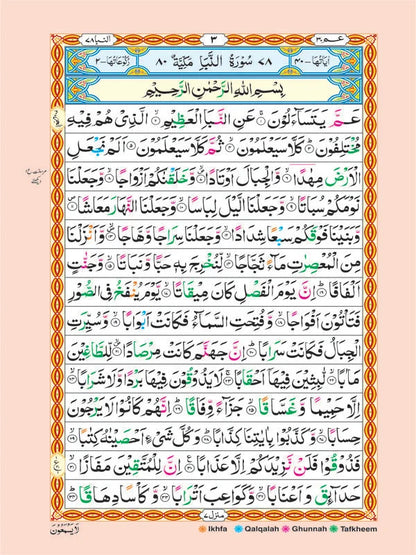 عمّ ٣٠
٣
النبا ٧٨
اٰیاتها ٤٠
٧٨ سُوْرَةُ النَّبَاِ مَكِّيَّةٌ ٨٠
رکوعاتها ٢
بِسْمِ اللّٰهِ الرَّحْمٰنِ الرَّحِيْمِ
عَمَّ يَتَسَآءَلُوْنَ۝١ عَنِ النَّبَاِ الْعَظِيْمِ۝٢ الَّذِيْ هُمْ فِيْهِ
مُخْتَلِفُوْنَ۝٣ كَلَّا سَيَعْلَمُوْنَ۝٤ ثُمَّ كَلَّا سَيَعْلَمُوْنَ۝٥ اَلَمْ نَجْعَلِ
الْاَرْضَ مِهٰدًا۝٦ وَّالْجِبَالَ اَوْتَادًا۝٧ وَّخَلَقْنٰكُمْ اَزْوَاجًا۝٨ وَّجَعَلْنَا
نَوْمَكُمْ سُبَاتًا۝٩ وَّجَعَلْنَا الَّيْلَ لِبَاسًا۝١٠ وَّجَعَلْنَا النَّهَارَ مَعَاشًا۝١١
وَّبَنَيْنَا فَوْقَكُمْ سَبْعًا شِدَادًا۝١٢ وَّجَعَلْنَا سِرَاجًا وَّهَّاجًا۝١٣ وَّاَنْزَلْنَا
مِنَ الْمُعْصِرٰتِ مَآءً ثَجَّاجًا۝١٤ لِّنُخْرِجَ بِهٖ حَبًّا وَّنَبَاتًا۝١٥ وَّجَنّٰتٍ
اَلْفَافًا۝١٦ اِنَّ يَوْمَ الْفَصْلِ كَانَ مِيْقَاتًا۝١٧ يَّوْمَ يُنْفَخُ فِي الصُّوْرِ
فَتَاْتُوْنَ اَفْوَاجًا۝١٨ وَّفُتِحَتِ السَّمَآءُ فَكَانَتْ اَبْوَابًا۝١٩ وَّسُيِّرَتِ
الْجِبَالُ فَكَانَتْ سَرَابًا۝٢٠ اِنَّ جَهَنَّمَ كَانَتْ مِرْصَادًا۝٢١ لِّلطَّاغِيْنَ
مَاٰبًا۝٢٢ لّٰبِثِيْنَ فِيْهَآ اَحْقَابًا۝٢٣ لَا يَذُوْقُوْنَ فِيْهَا بَرْدًا وَّلَا شَرَابًا۝٢٤
اِلَّا حَمِيْمًا وَّغَسَّاقًا۝٢٥ جَزَآءً وِّفَاقًا۝٢٦ اِنَّهُمْ كَانُوْا لَا يَرْجُوْنَ
حِسَابًا۝٢٧ وَّكَذَّبُوْا بِاٰيٰتِنَا كِذَّابًا۝٢٨ وَكُلَّ شَيْءٍ اَحْصَيْنٰهُ كِتٰبًا۝٢٩
فَذُوْقُوْا فَلَنْ نَّزِيْدَكُمْ اِلَّا عَذَابًا۝٣٠ اِنَّ لِلْمُتَّقِيْنَ مَفَازًا۝٣١
حَدَآئِقَ وَاَعْنَابًا۝٣٢ وَّكَوَاعِبَ اَتْرَابًا۝٣٣ وَّكَاْسًا دِهَاقًا۝٣٤
منزل ٧
لَا يَسْمَعُوْنَ
Ikhfa Qalqalah Ghunnah Tafkheem